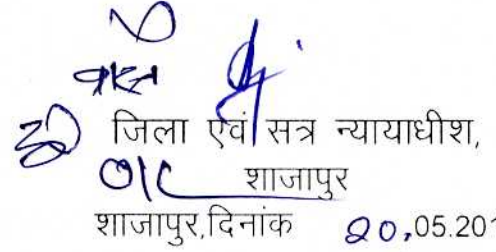 वास्ते
जिला एवं सत्र न्यायाधीश,
शाजापुर
शाजापुर,दिनांक 20.05.201